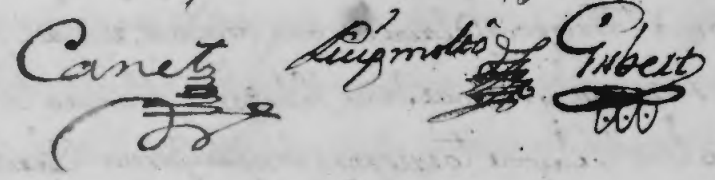 Canet Puigmoltó Gisbert